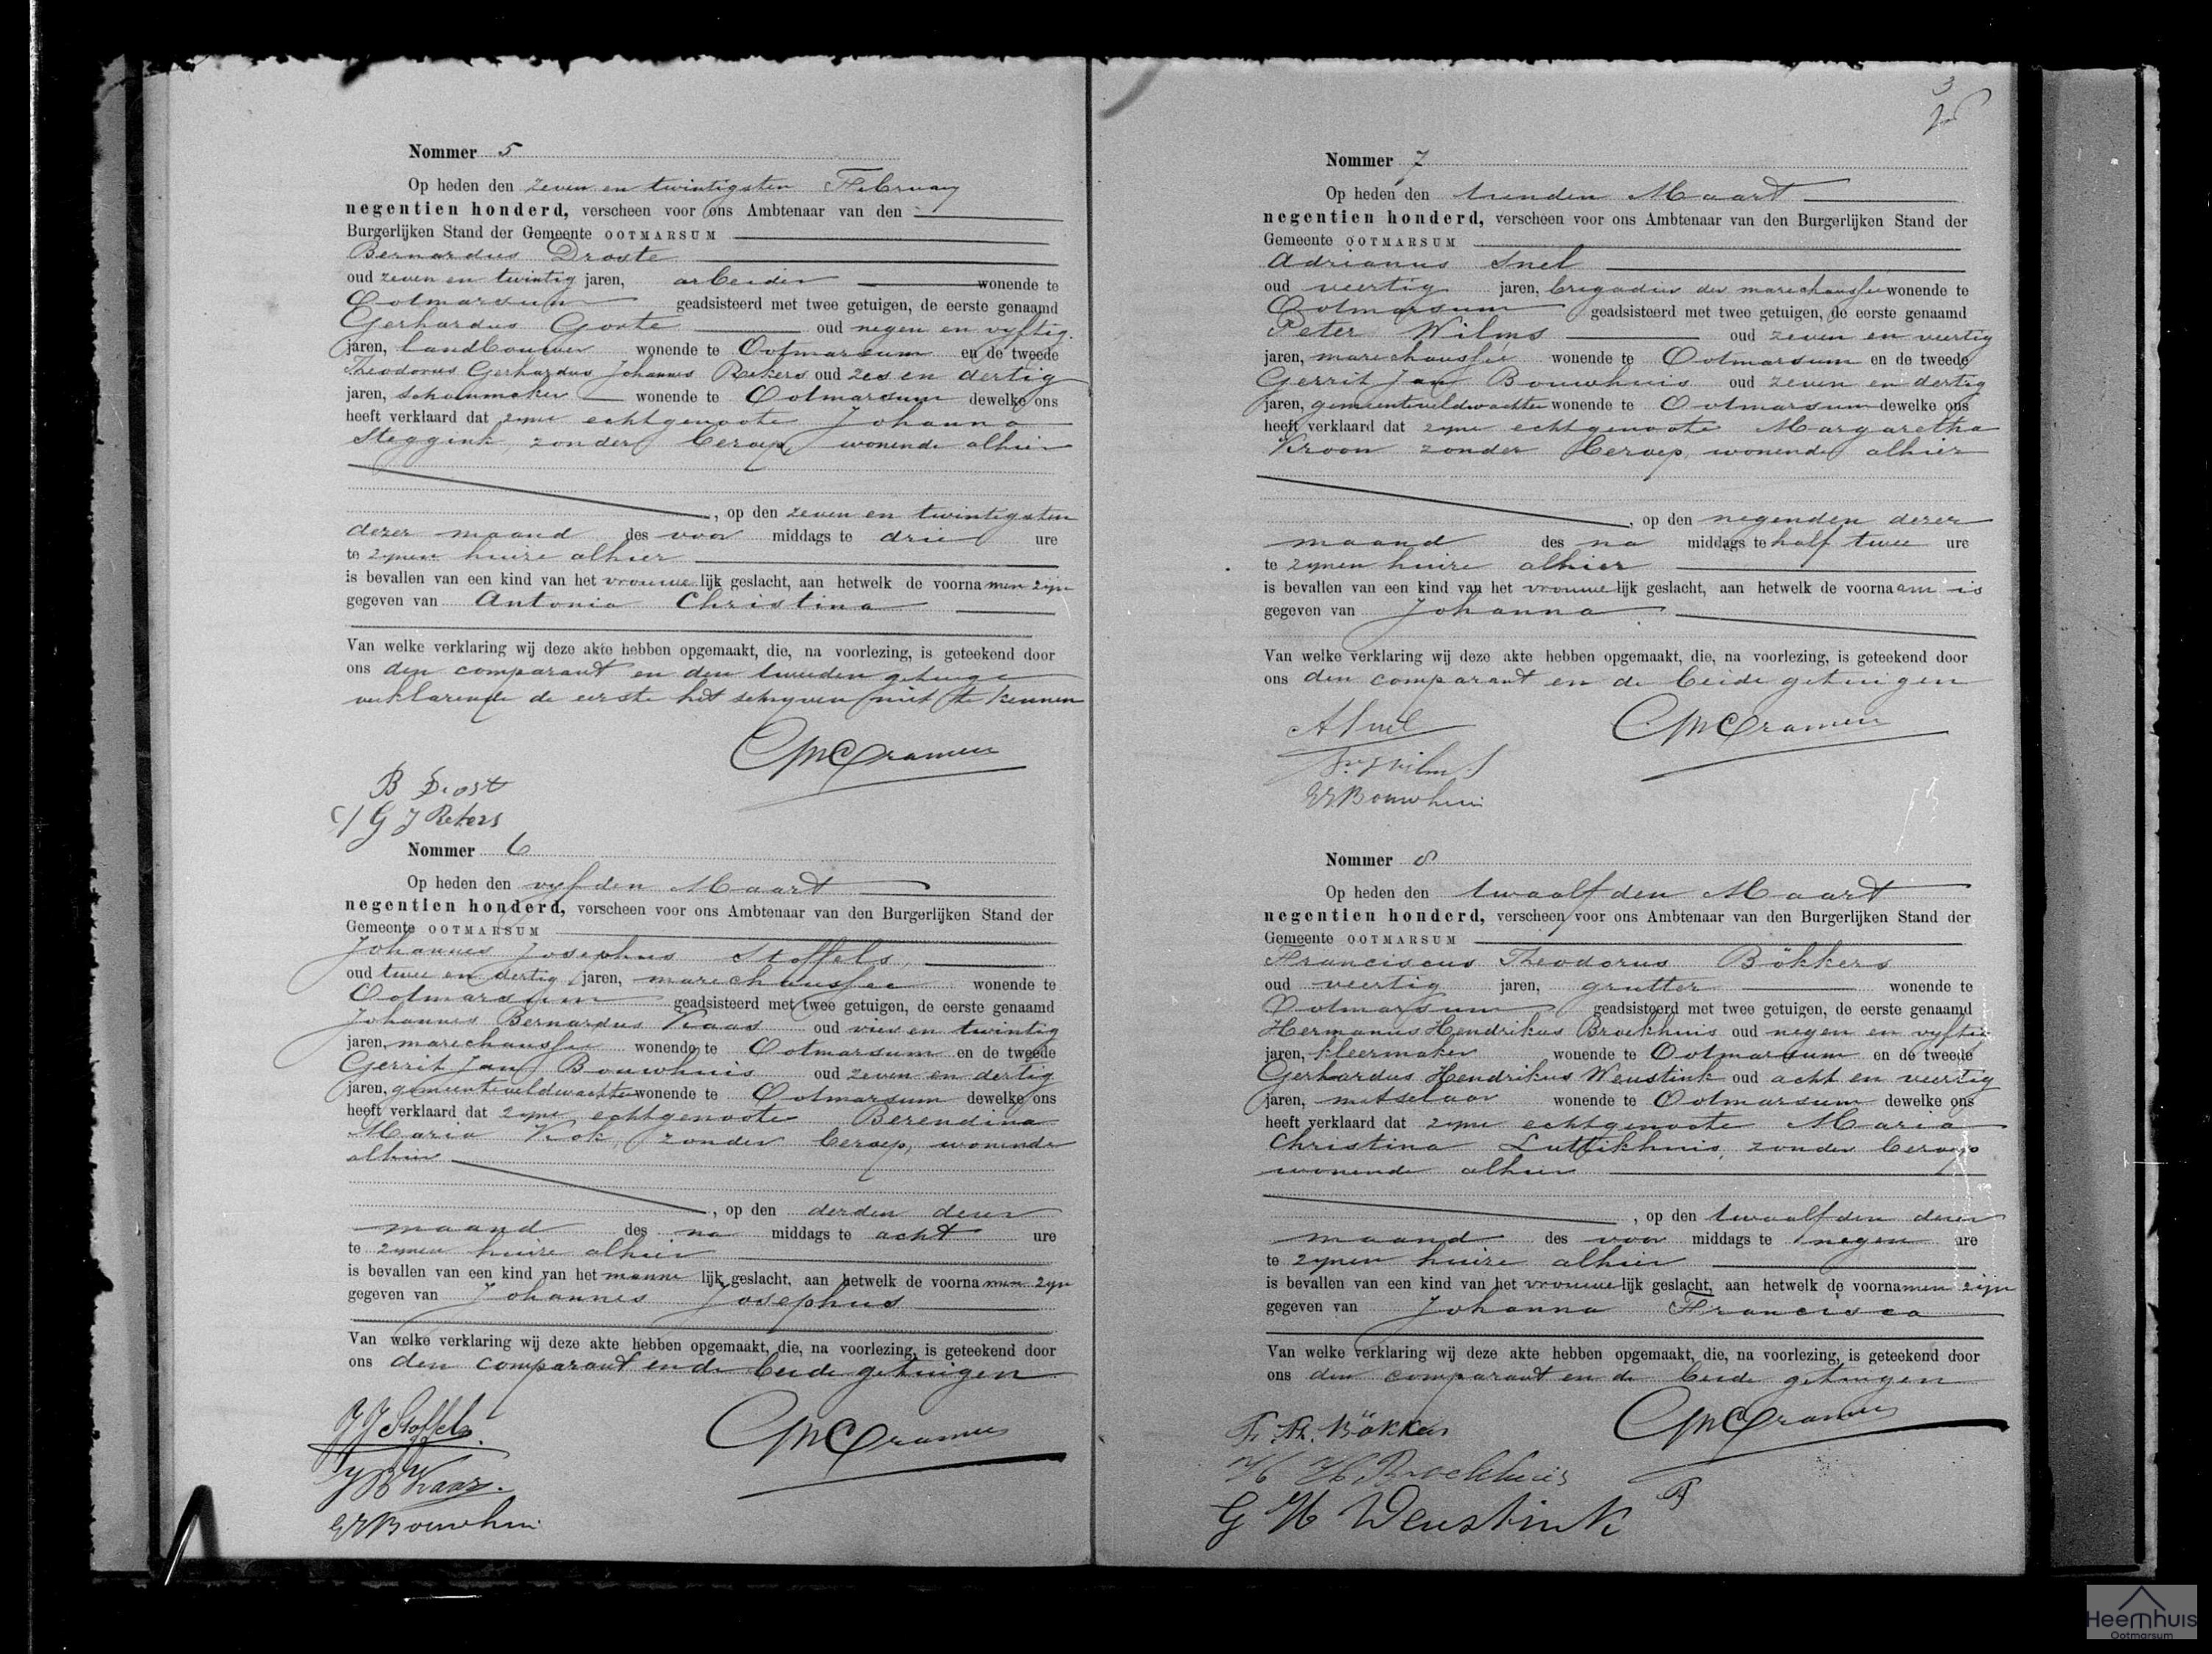 Nommer 5
Op heden den zeven en twintigsten February
negentien honderd, verscheen voor ons Ambtenaar van den
Burgerlijken Stand der Gemeente OOTMARSUM
Bernardus Droste
oud zeven en twintig jaren, arbeider wonende te
Ootmarsum geadsisteerd met twee getuigen, de eerste genaamd
Gerhardus Grote oud negen en vyftig
jaren, landbouwer wonende te Ootmarsum en de tweede
Theodorus Gerhardus Johannes Rekers oud zes en dertig
jaren, schoenmaker wonende te Ootmarsum dewelke ons
heeft verklaard dat zyne echtgenoote Johanna
Steggink, zonder beroep, wonende alhier
, op den zeven en twintigsten
dezer maand des voor middags te drie ure
te zynen huize alhier
is bevallen van een kind van het vrouwelijk geslacht, aan hetwelk de voornamen zyn
gegeven van Antonia Christina
Van welke verklaring wij deze akte hebben opgemaakt, die, na voorlezing, is geteekend door
ons den comparant en den tweeden getuige
verklarende de eerste het schryven niet te kennen
Cramer
B Drost
G J Rekers
Nommer 6
Op heden den vyfden Maart
negentien honderd, verscheen voor ons Ambtenaar van den Burgerlijken Stand der
Gemeente OOTMARSUM
Johannes Josephus Stoffels
oud twee en dertig jaren, marechaussee wonende te
Ootmarsum geadsisteerd met twee getuigen, de eerste genaamd
Johannes Bernardus Kaas oud vier en twintig
jaren, marechaussee wonende te Ootmarsum en de tweede
Gerrit Jan Bouwhuis oud zeven en dertig
jaren, gemeenteveldwachter wonende te Ootmarsum dewelke ons
heeft verklaard dat zyne echtgenoote Berendina
Maria Kok, zonder beroep, wonende
alhier
, op den derden dezer
maand des na middags te acht ure
te zynen huize alhier
is bevallen van een kind van het mannelijk geslacht, aan hetwelk de voornamen zyn
gegeven van Johannes Josephus
Van welke verklaring wij deze akte hebben opgemaakt, die, na voorlezing, is geteekend door
ons den comparant en de beide getuigen
J J Stoffels
Cramer
J B Kaas.
G J Bouwhuis
3
Nommer 7
Op heden den tienden Maart
negentien honderd, verscheen voor ons Ambtenaar van den Burgerlijken Stand der
Gemeente OOTMARSUM
Adrianus Snel
oud veertig jaren, brigadier der marechaussee wonende te
Ootmarsum geadsisteerd met twee getuigen, de eerste genaamd
Peter Wilms oud zeven en veertig
jaren, marechaussée wonende te Ootmarsum en de tweede
Gerrit Jan Bouwhuis oud zeven en dertig
jaren, gemeenteveldwachter wonende te Ootmarsum dewelke ons
heeft verklaard dat zyne echtgenoote Margaretha
Kroon zonder beroep, wonende alhier
, op den negenden dezer
maand des na middags te half twee ure
te zynen huize alhier
is bevallen van een kind van het vrouwelijk geslacht, aan hetwelk de voornaam is
gegeven van Johanna
Van welke verklaring wij deze akte hebben opgemaakt, die, na voorlezing, is geteekend door
ons den comparant en de beide getuigen
A Snel
Cramer
Wilms
G J Bouwhuis
Nommer 8
Op heden den twaalfden Maart
negentien honderd, verscheen voor ons Ambtenaar van den Burgerlijken Stand der
Gemeente OOTMARSUM
Franciscus Theodorus Bökkers
oud veertig jaren, grutter wonende te
Ootmarsum geadsisteerd met twee getuigen, de eerste genaamd
Hermanus Hendrikus Broekhuis oud negen en vyftig
jaren, kleermaker wonende te Ootmarsum en de tweede
Gerhardus Hendrikus Weustink oud acht en veertig
jaren, metselaar wonende te Ootmarsum dewelke ons
heeft verklaard dat zyne echtgenoote Maria
Christina Luttikhuis, zonder beroep
wonende alhier
, op den twaalfden dezer
maand des voor middags te negen ure
te zynen huize alhier
is bevallen van een kind van het vrouwelijk geslacht, aan hetwelk de voornamen zijn
gegeven van Johanna Francisca
Van welke verklaring wij deze akte hebben opgemaakt, die, na voorlezing, is geteekend door
ons den comparant en de beide getuigen
F. Th. Bökkers
Cramer
H H Broekhuis
G H Weustink
Heemhuis
Ootmarsum